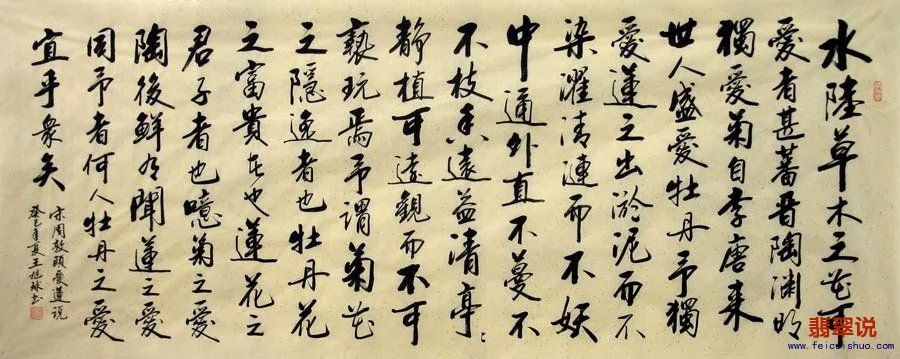 水陸草木之花可
愛者甚蕃晋陶渊明
獨愛菊自李唐来
世人盛愛牡丹予獨
愛蓮之出淤泥而不
染濯清漣而不妖
中通外直不蔓不
不枝香遠益清亭〻
静植可遠觀而不可
褻玩焉予謂菊花
之隐逸者也牡丹花
之富貴者也蓮花之
君子者也噫菊之愛
陶後鮮有聞蓮之愛
同予者何人牡丹之愛
宜乎衆矣
宋周敦頤愛蓮说
癸巳年夏王旭书
翡翠说
www.feicuishuo.com